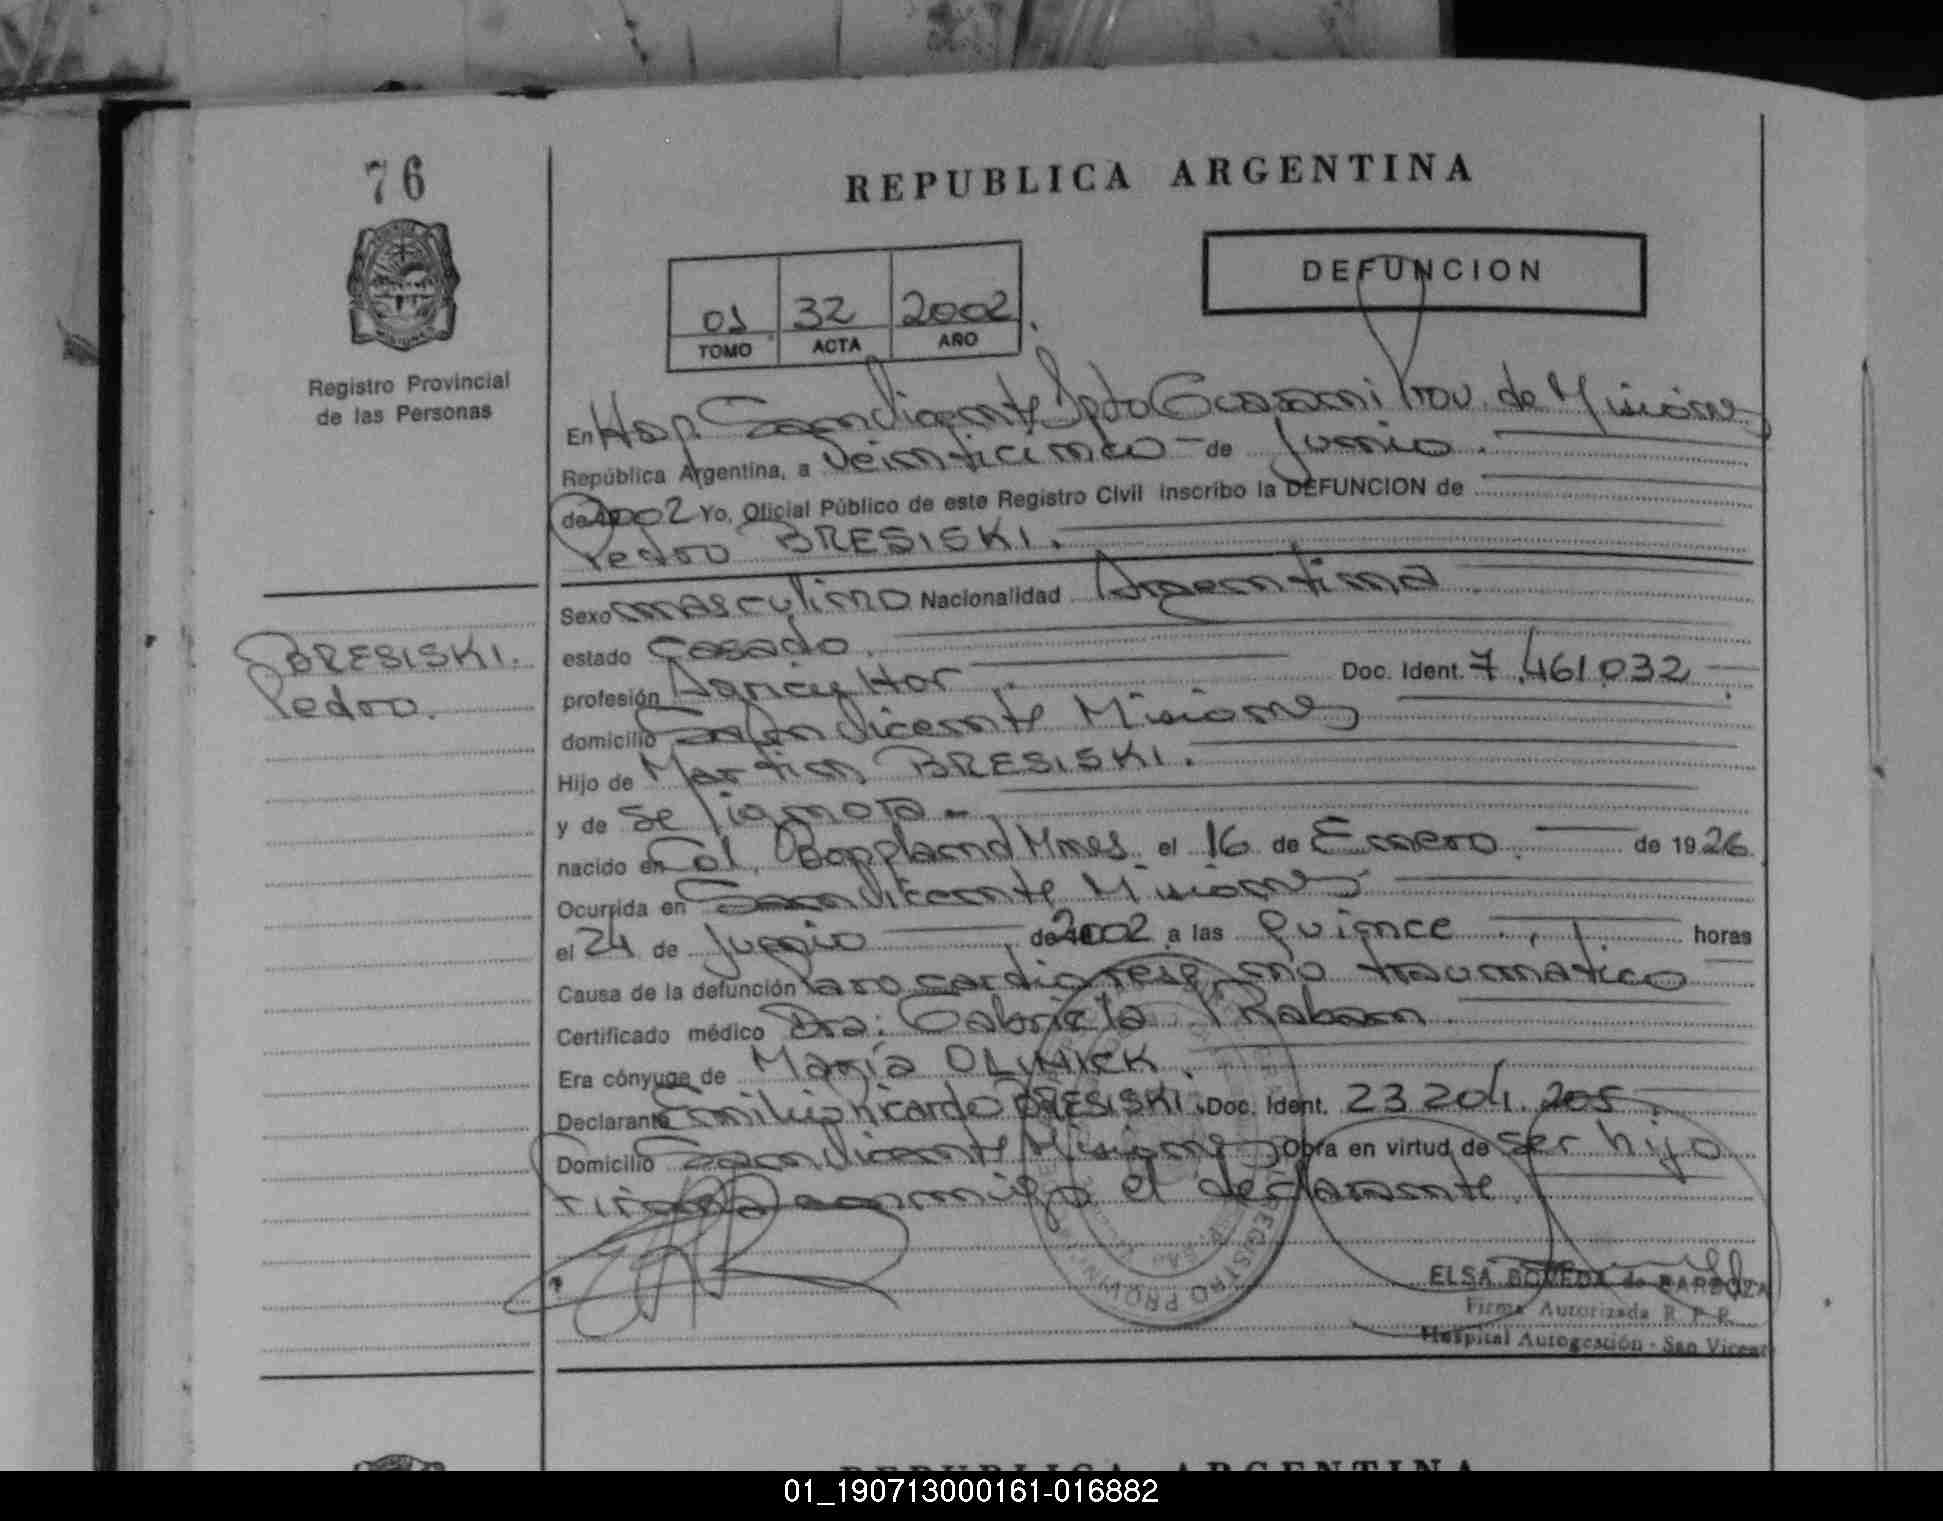 76
REPUBLICA ARGENTINA
DEFUNCION
01 32 2002
TOMO ACTA AÑO
Registro Provincial
de las Personas
En Hosp. San Vicente Dpto Guarani Prov. de Misiones
República Argentina, a Veinticinco de Junio.
de 2002 Yo, Oficial Público de este Registro Civil inscribo la DEFUNCION de
Pedro BRESISKI.
BRESISKI.
Pedro.
Sexo masculino Nacionalidad Argentina
estado Casado.
profesión Agricultor Doc. Ident. 7.461.032
domicilio San Vicente Misiones
Hijo de Martin BRESISKI.
y de se ignora -
nacido en Col. Boppland Mnes. el 16 de Enero. de 1926
Ocurrida en San Vicente Misiones
el 24 de Junio de 2002 a las Quince horas
Causa de la defunción Paro cardio resp. no traumatico
Certificado médico Dra. Gabriela Raban
Era cónyuge de Maria OLINICK.
Declarante Emilio Ricardo BRESISKI. Doc. Ident. 23.204.205
Domicilio San Vicente Misiones Obra en virtud de ser hijo
Firma conmigo el declarante.
REGISTRO PROVIN
ELSA BOVEDA de BARBOZA
Firma Autorizada R. P. P.
Hospital Autogestión - San Vicente
REPUBLICA ARGENTINA
01_190713000161-016882